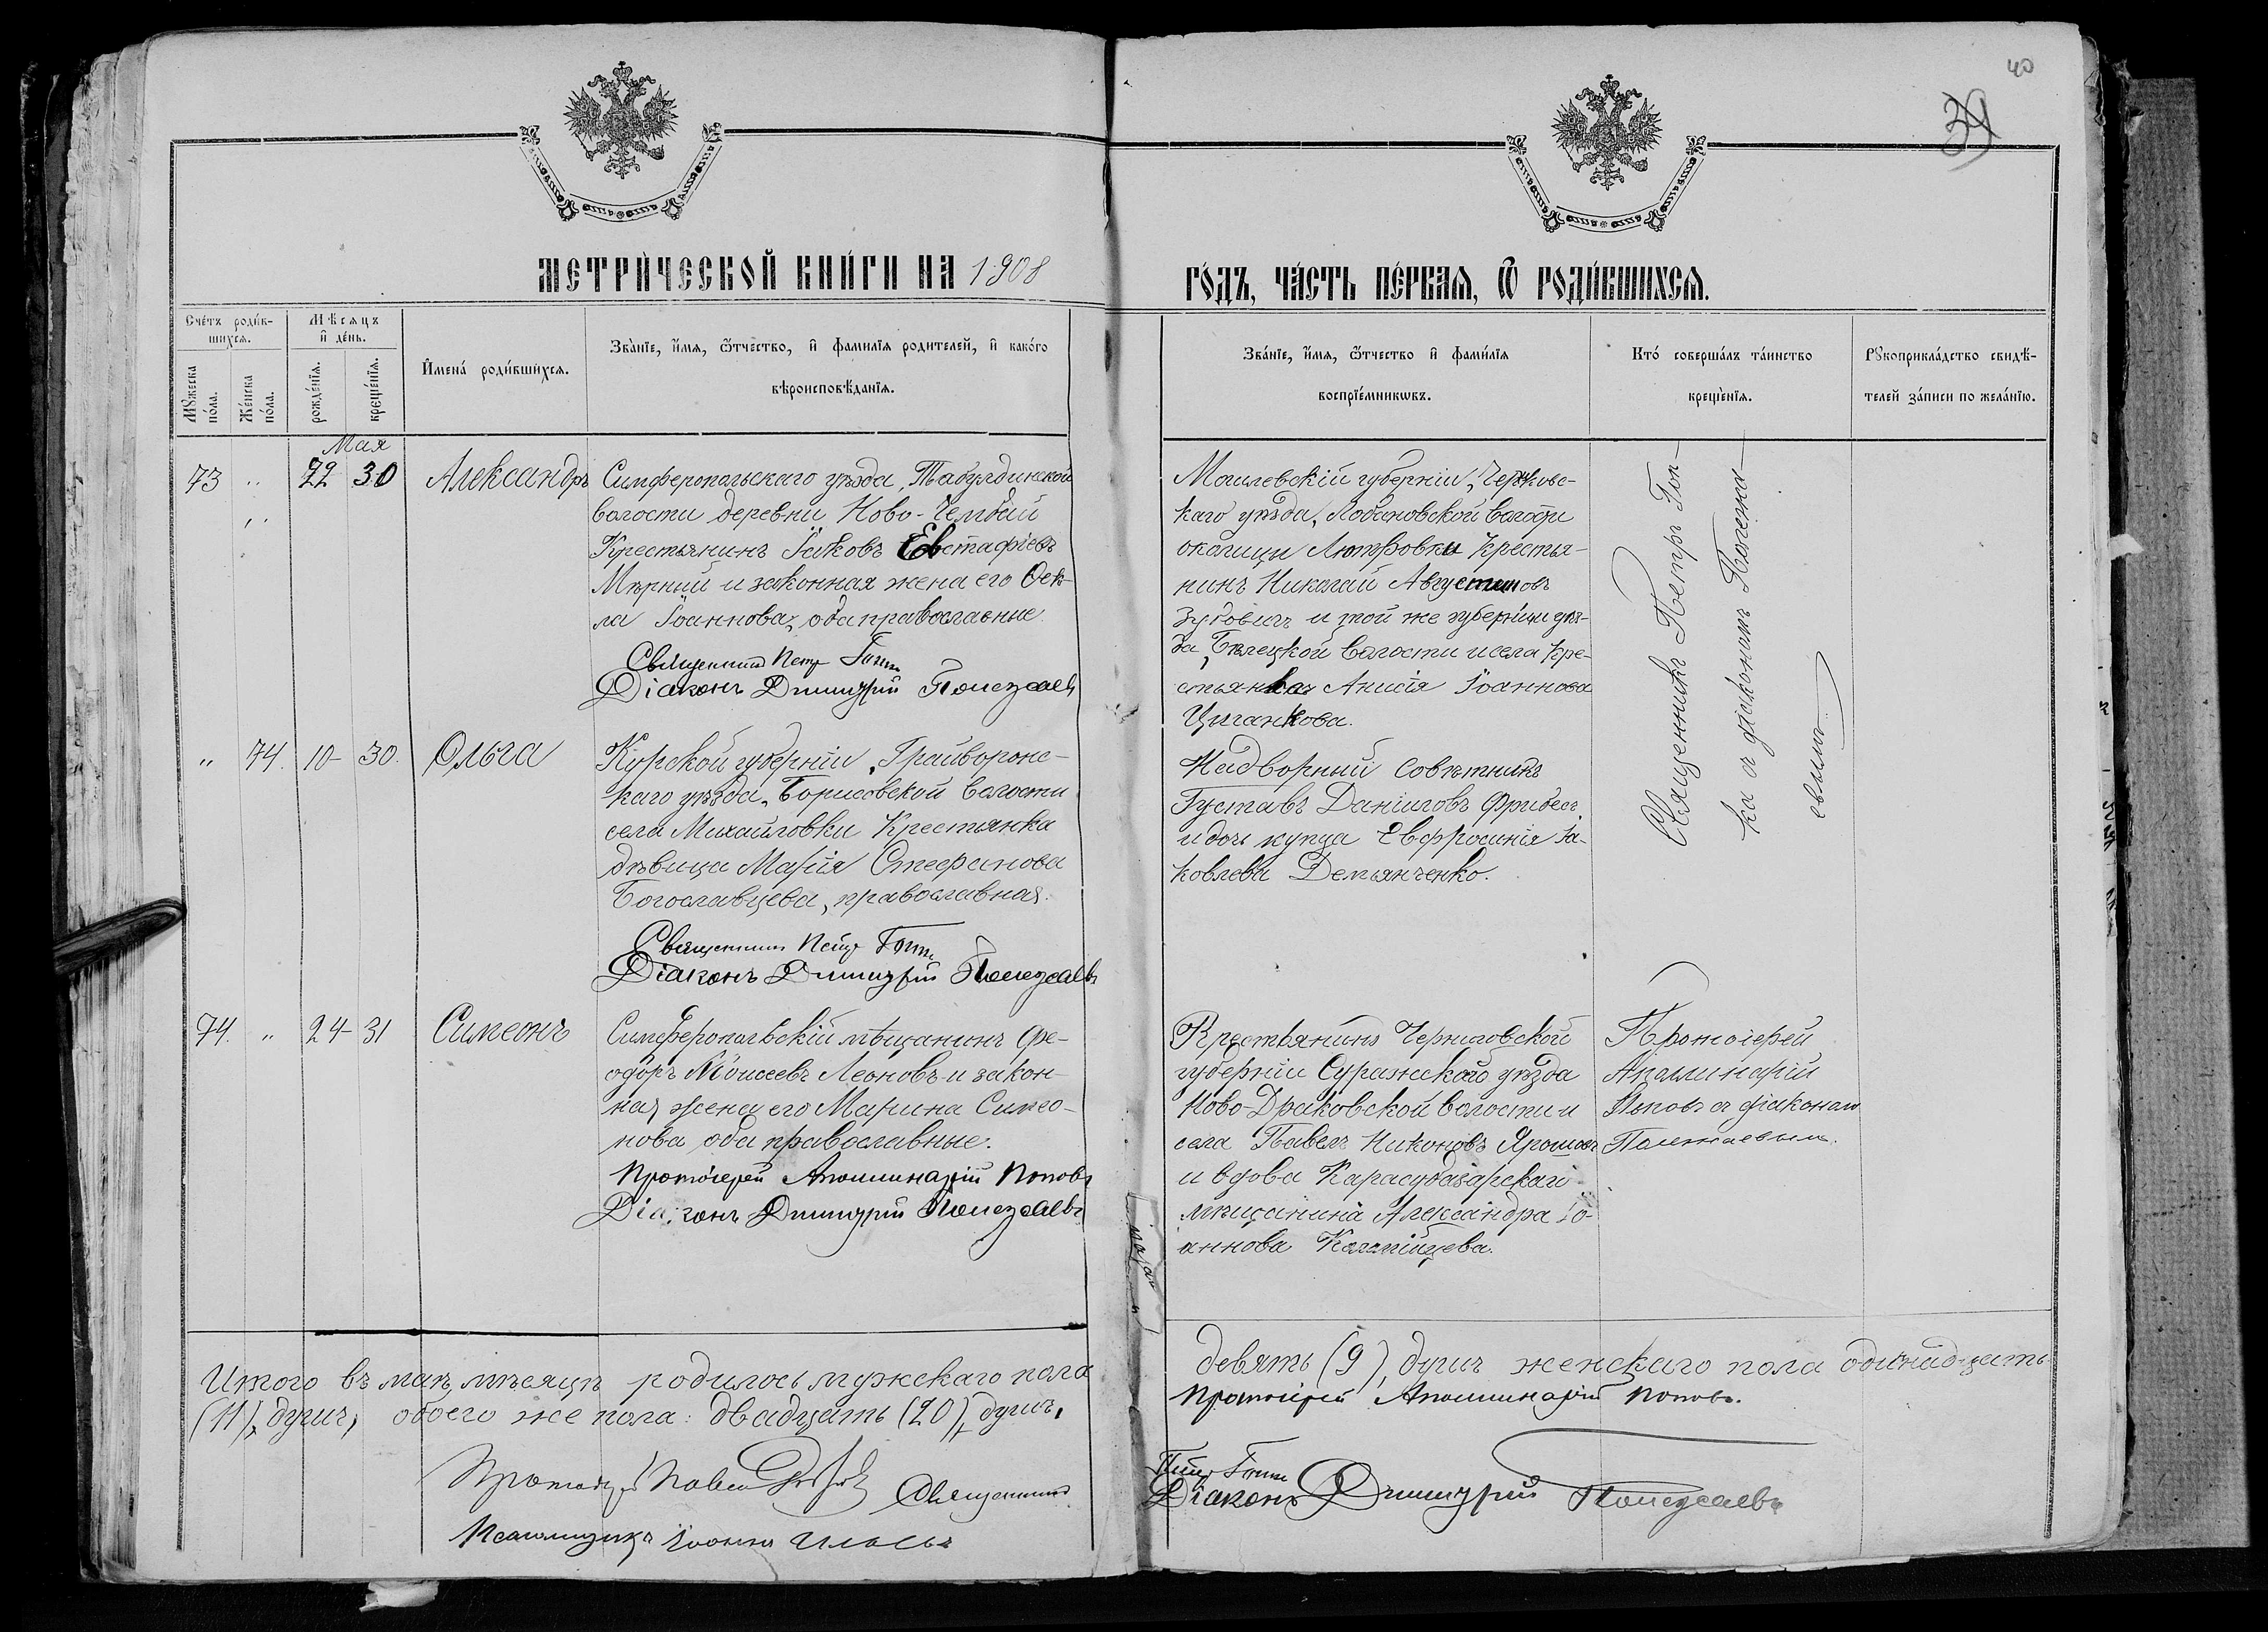 40
39
МЕТРИ́ЧЕСКОЙ КНИ́ГИ НА 1908
ГО́ДЪ, ЧА́СТЬ ПЕ́РВАѦ, Ѿ РОДИ́ВШИХСѦ.
Сче́тъ роди́в-
шихсѧ.
Мꙋжеска по́ла.
Же́нска по́ла.
Мѣсѧцъ
и҆ де́нь.
рожде́нїѧ.
креще́нїѧ.
И҆мена́ роди́вшихсѧ.
Зва́нїе, и҆́мѧ, ѻ҆́тчество, и҆ фамилїѧ родителей, и҆ како́гѡ
вѣроисповѣданїѧ.
Зва́нїе, и҆́мѧ, ѻ҆́тчество и҆ фами́лїѧ
воспрїе́мникѡвъ.
Кто́ соверша́лъ та́инство
креще́нїѧ.
Рꙋкоприкла́дство свидѣ́-
телей за́писи по жела́нїю.
Мая
73 " 22 30 Александръ
Симферопольскаго уѣзда, Табулдинской
волости деревни Ново-Чембай
Крестьянинъ Іаковъ Евстафіевъ
Мирный и законная жена его Ѳек-
ла Іоаннова, оба православные.
Священникъ Петръ
Діаконъ Димитрій Полежаевъ
Могилевскій губерніи,
каго уѣзда, Лобановской волости
околицы крестья-
нинъ Николай Августиновъ
и той же губерніи уѣз-
да, волости и села кре-
стьянка Анисія Іоаннова
Циганкова.
Священникъ Петръ
ка съ діакономъ Полежа-
евымъ
" 74. 10- 30. Ольга
Курской губерніи, Грайворонс-
каго уѣзда, Борисовской волости
села Михайловки Крестьянка
дѣвица Марія Стефанова
Богославцева, православная.
Священникъ Петръ
Діаконъ Димитрій Полежаевъ
Надворный Совѣтникъ
Густавъ Даниловъ
и дочь купца Евфросинія Іа-
ковлева Демьянченко.
74. " 24- 31 Симеонъ
Симферопольскій мѣщанинъ Ѳе-
одоръ Моисеевъ Леоновъ и закон-
ная жена его Марина Симео-
нова оба православные.
Протоіерей Аполлинарій Поповъ
Діаконъ Димитрій Полежаевъ
Крестьянинъ Черниговской
губерніи Суражскаго уѣзда
Ново-Драковской волости и
села Павелъ Никоновъ
и вдова Карасубазарскаго
мѣщанина Александра Іо-
аннова
Протоіерей
Аполлинарій
Поповъ съ діакономъ
Полежаевымъ.
Итого въ маѣ мѣсяцѣ родилось мужскаго пола
девять (9), душъ женскаго пола одинадцать
(11), душъ, обоего же пола: двадцать (20), душъ.
Протоіерей Аполлинарій Поповъ.
Протоіерей Павелъ Священникъ
Петръ
Діаконъ Димитрій Полежаевъ
Псаломщикъ Іоаннъ